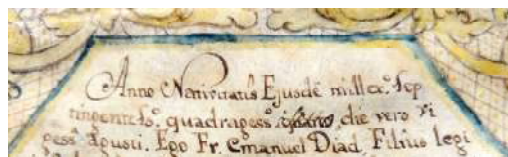 Anno Nativitatis Ejusdē mill~o. Sep
tingentes~o. quadrages~o. die vero vi
ges~a. Agusti. Ego Fr. Emanuel Diad. Filius legi